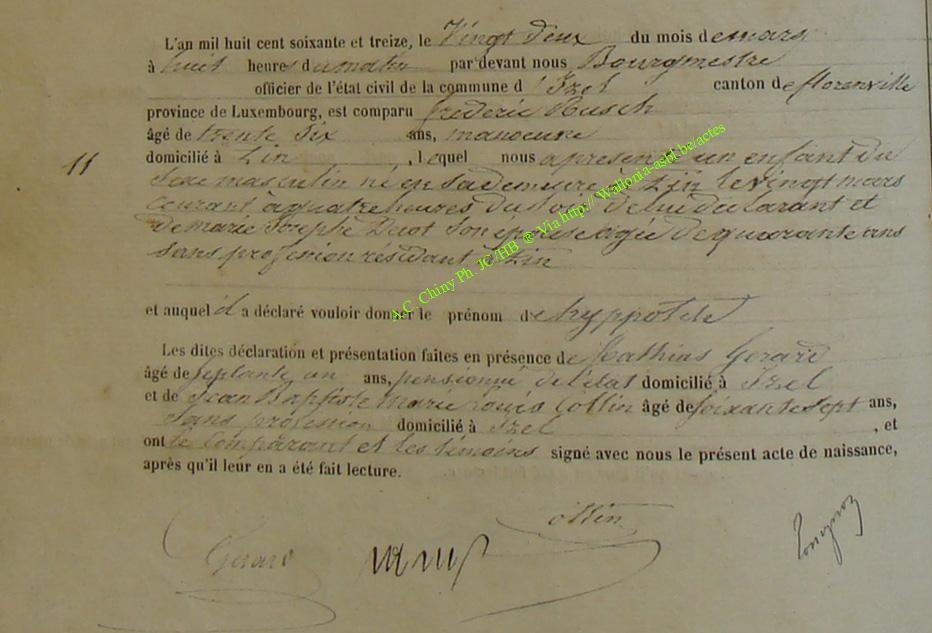 L'an mil huit cent soixante et treize, le Vingt deux du mois de mars
à huit heures du matin par devant nous Bourgmestre
officier de l'état civil de la commune d'Izel canton de florenville
province de Luxembourg, est comparu frederic Rusch
âgé de trente six ans, manoeuvre
11 domicilié à Zin, lequel nous a présenté un enfant du
Sexe masculin né en sa demeure à Zin le vingt mars
courant à quatre heures du soir de lui déclarant et
de marie Josephe son épouse agée de quarante ans
sans profession résidant à Zin
et auquel il a déclaré vouloir donner le prénom de hyppolite
Les dites déclaration et présentation faites en présence de Mathius Gerard
âgé de septante un ans, pensionné de l'état domicilié à Izel
et de Jean Baptiste marie louis Collin âgé de soixante sept ans,
Sans profession domicilié à Izel, et
ont le comparant et les témoins signé avec nous le présent acte de naissance,
après qu'il leur en a été fait lecture.
Collin
Gerard
A.C. Chiny Ph. JC/HB @ Via http:// Wallonia-asbl.be/actes